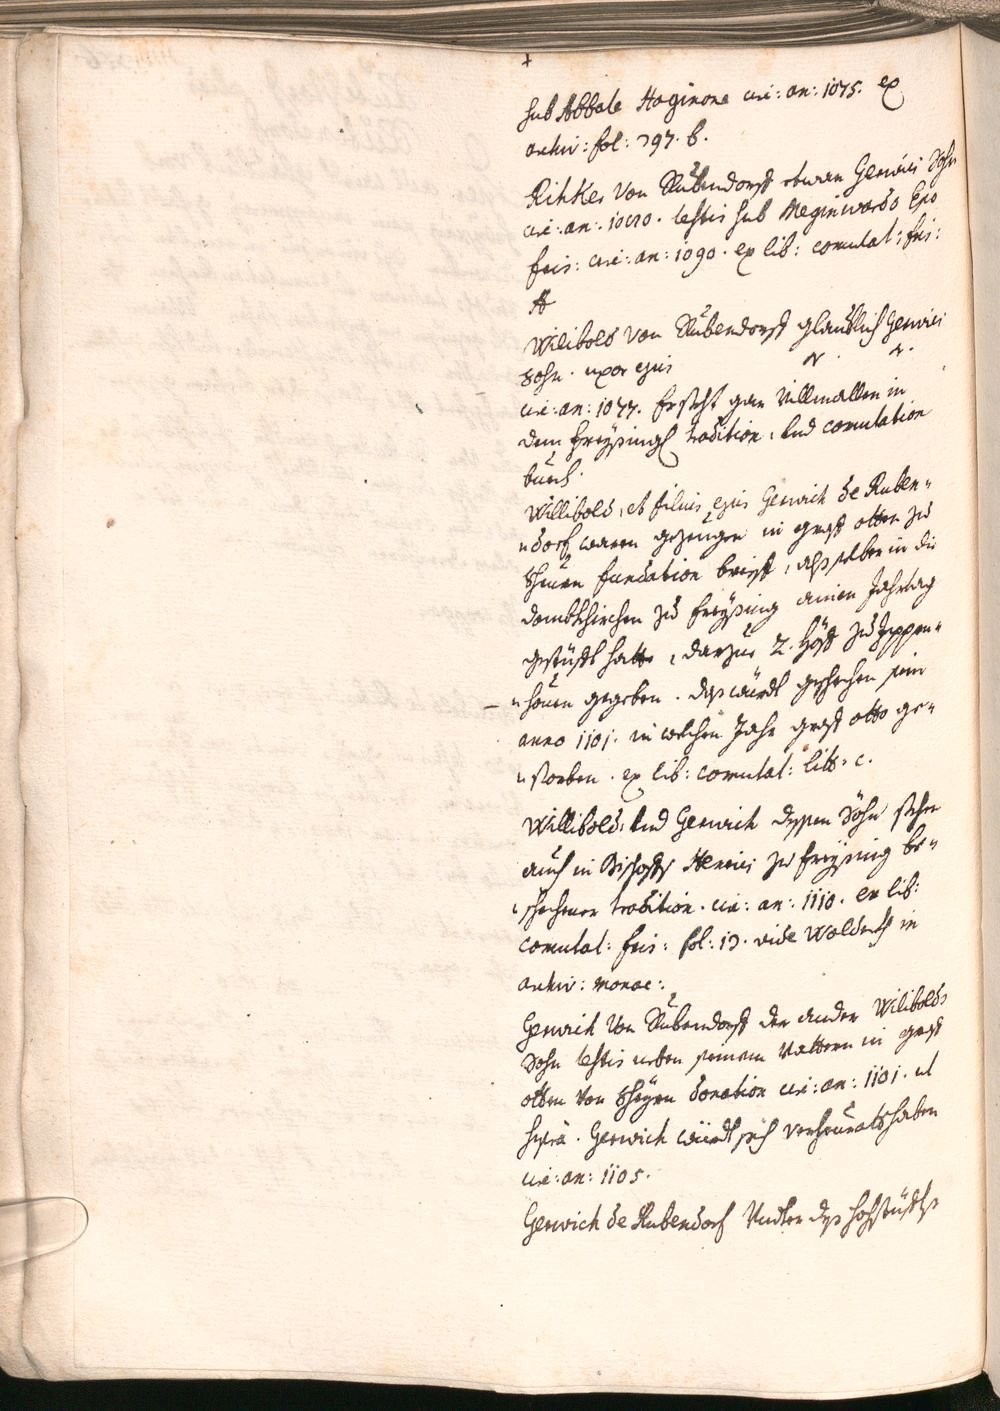 +
sub Abbate Haginone circ: an: 1075. ex
archiv: fol: 797. b.
Rihker von Rübendorff etwan Gerwici Sohn
circ: an: 1080. testis sub Meginwardo Epo
fris: circ: an: 1090. ex lib: comutat: fris:
A
Wilibold von Rübendorff glaublich Gerwici
Sohn. uxor ejus N. N.
circ: an: 1077. Er steht gar villmallen in
dem Freysingl tradition, und comutation
buech.
Willibold, et filius ejus Gerwich de Ruben-
-dorf waren gezeugen in graff otten zu
Scheurn fundation brieff, alß selber in die
dombkhirchen zu Freysing ainen Jahrtag
gestüfft hatte, darzue 2. höff zu
-houen gegeben. daß würdt geschechen sein
anno 1101. in welchen Jahr graff otto ge-
-storben. ex lib: comutat: litt: c.
Willibold, und Gerwich dessen Sohn stehen
auch in Bischoffs Henrici zu Freysing be-
-schechener tradition. circ: an: 1110. ex lib:
comutat: fris: fol: 13. vide Waldeckh in
archiv: monac:.
Gerwich von Rübendorff der ander Wilibolds
Sohn testis neben seinem Vattern in graff
otten von Scheyrn donation circ: an: 1101. ut
supra. Gerwich würdt sich verheuraths haben
circ: an: 1105.
Gerwich de Rubendorf Undter deß hochstüffts